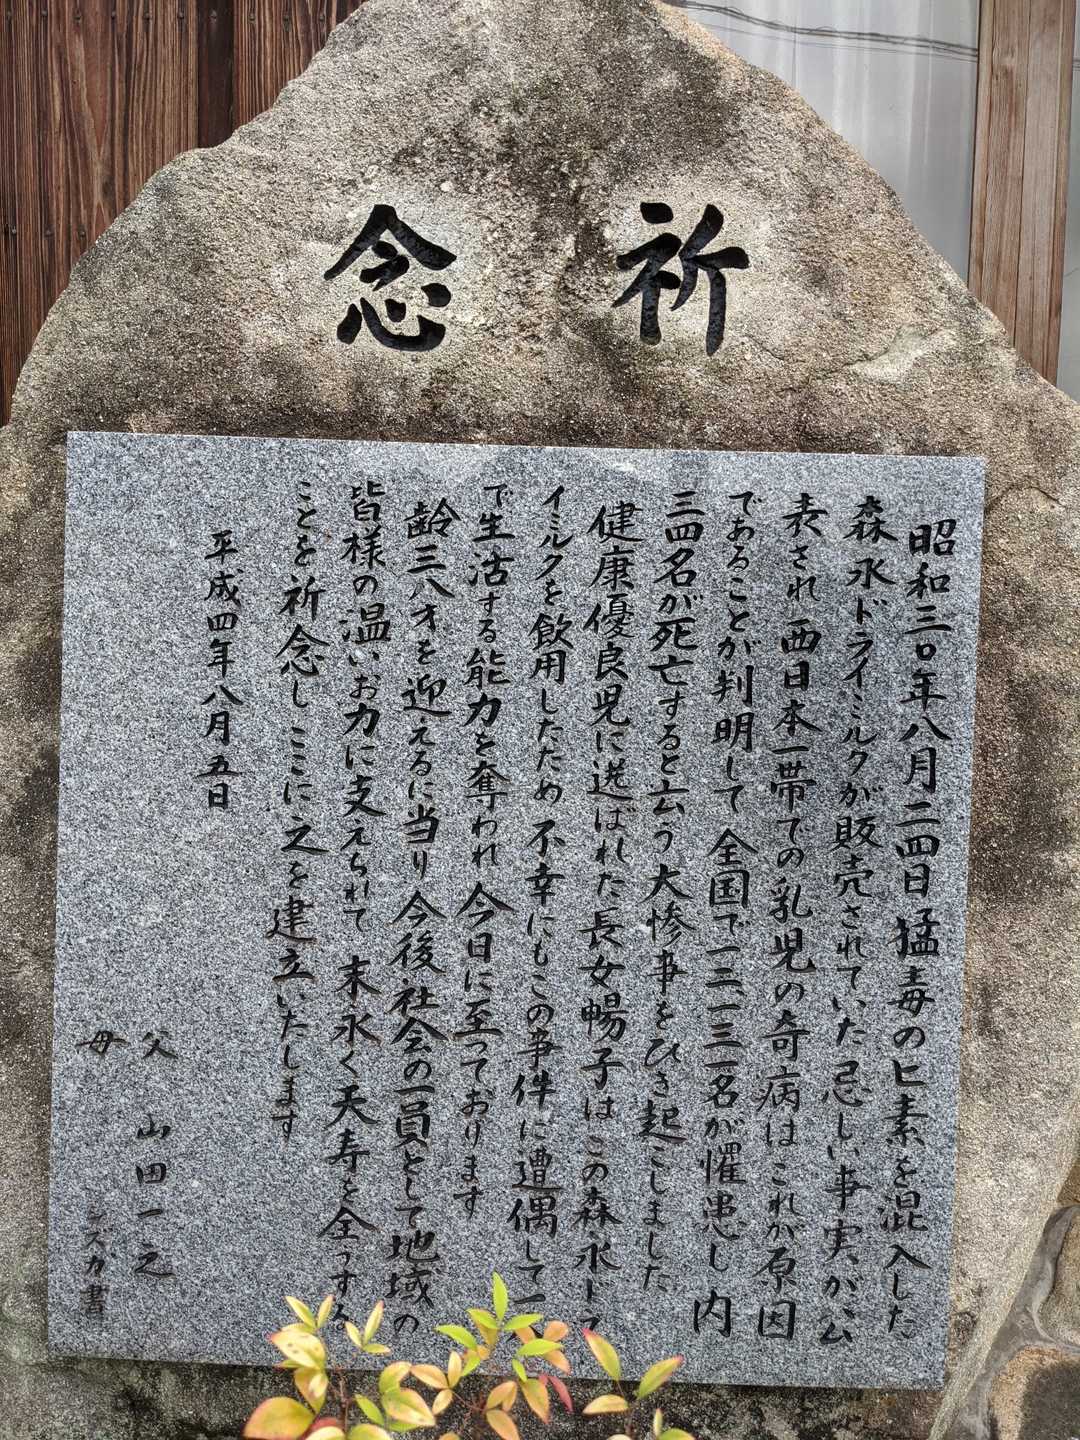 祈念
昭和三〇年八月二四日猛毒のヒ素を混入した
森永ドライミルクが販売されていた忌しい事実が公
表され西日本一帯での乳児の奇病はこれが原因
であることが判明して全国で一二、一三一名が罹患し内
三四名が死亡すると云う大惨事をひき起こしました
健康優良児に選ばれた長女暢子はこの森永ドラ
イミルクを飲用したため不幸にもこの事件に遭遇して一人
で生活する能力を奪われ今日に至っております
齢三八才を迎えるに当り今後社会の一員として地域の
皆様の温いお力に支えられて末永く天寿を全うする
ことを祈念しここに之を建立いたします
平成四年八月五日
父 山田一之
母 シズカ書